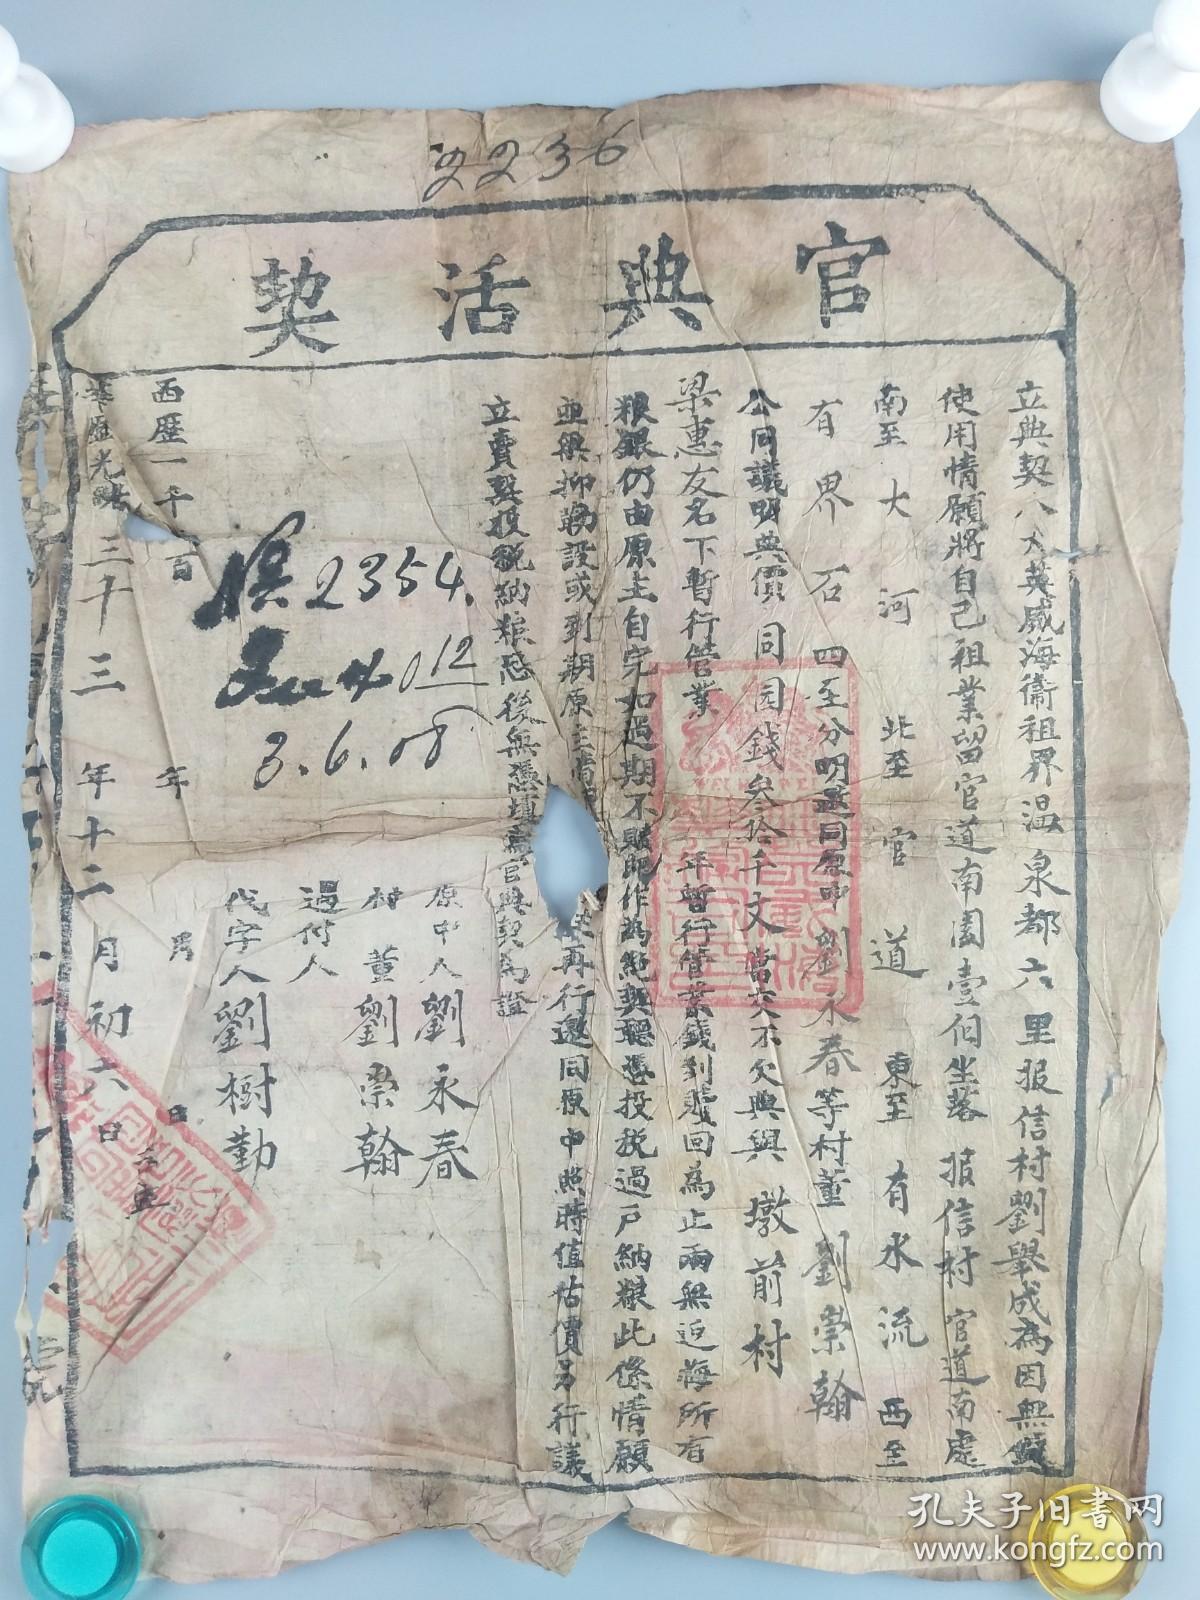 2236
官典活契
立典契人大英威海衛租界温泉都六里报信村劉舉成為因無錢
使用情願將自己祖業留官道南園壹伯坐落 报信村 官道南處
南至大河 北至官道 東至有水流 西至
有界石 四至分明邀同原中劉永春等村董劉崇翰
公同議明典價同困錢叁拾千文當交不欠典與 墩前村
梁惠友名下暫行管業 年暫行管業錢到贖回為止兩無迫悔所有
粮銀仍由原主自完如過期不贖即作為絕契聽憑投税過戶納粮此係情願
並無抑勒設或到期原主 再行邀同原中照時值估價另行議
立賣契投税納粮恐後無憑填寫官典契為證
原中人劉永春
村董劉崇翰
過付人
代字人劉樹勤
2354.
12
3.6.08
西歷一千 百 年 月 日
華歷光緒三十三年十二月初六日 立
孔夫子旧书网
www.kongfz.com